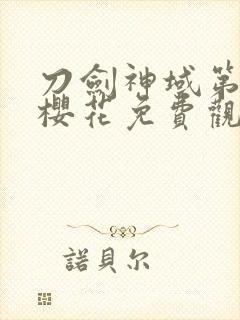 刀劍神域第
櫻花免費觀
諾貝尔